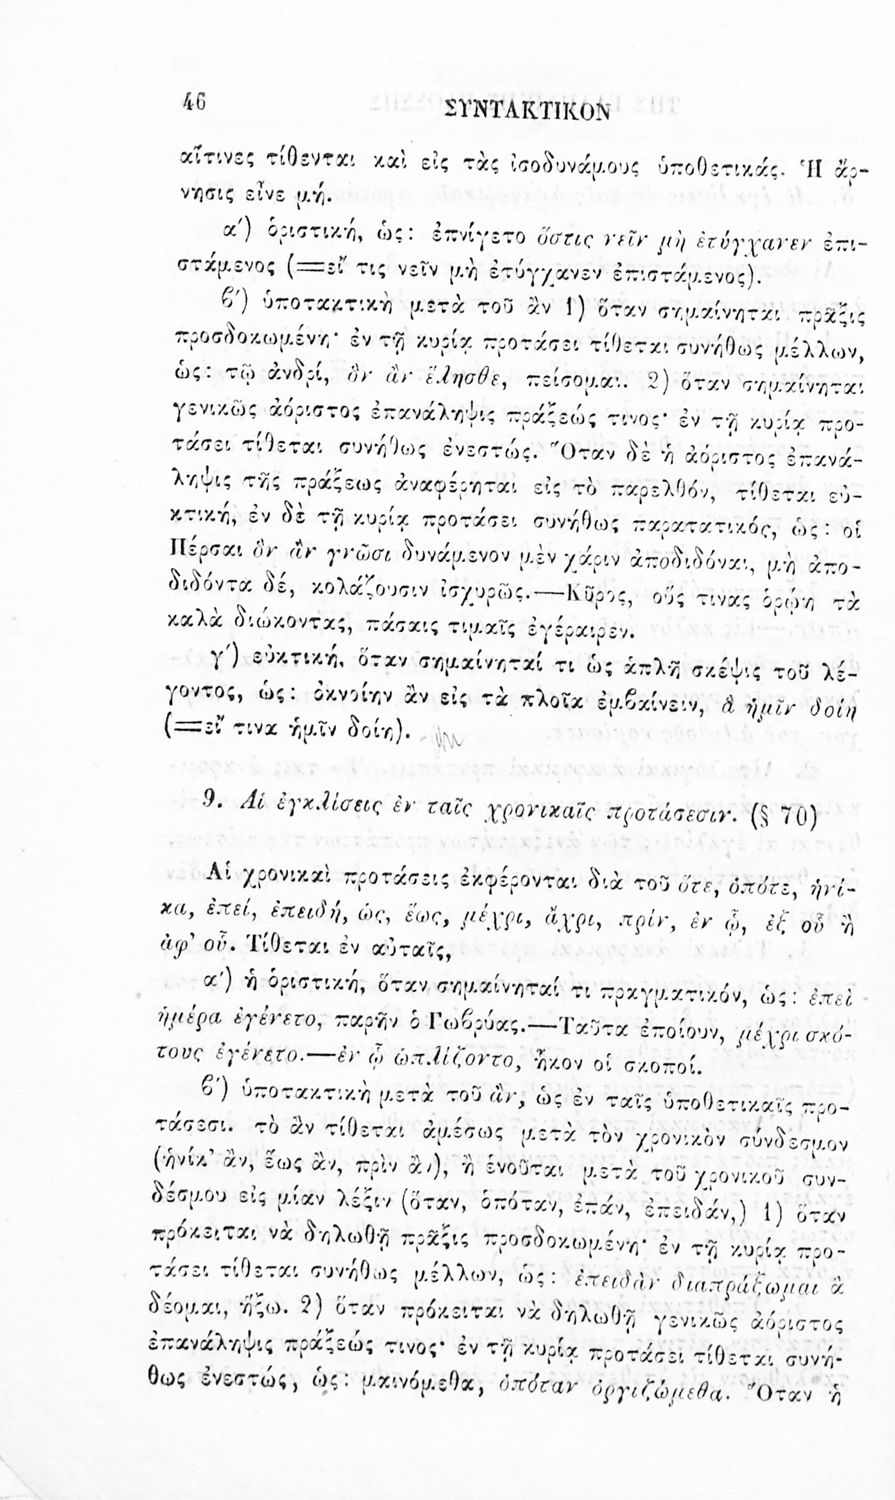 46
ΣΥΝΤΑΚΤΙΚΟΝ
αἵτινες τίθενται καὶ εἰς τὰς ἰσοδυνάμους ὑποθετικάς. Ἡ ἄρ-
νησις εἶνε μή.
α′) ὁριστική, ὡς: ἐπνίγετο ὅστις νεῖν μὴ ἐτύγχανεν ἐπι-
στάμενος (=εἴ τις νεῖν μὴ ἐτύγχανεν ἐπιστάμενος).
β′) ὑποτακτικὴ μετὰ τοῦ ἂν 1) ὅταν σημαίνηται πρᾶξις
προσδοκωμένη· ἐν τῇ κυρίᾳ προτάσει τίθεται συνήθως μέλλων,
ὡς: τῷ ἀνδρί, ὃν ἂν ἕλησθε, πείσομαι. 2) ὅταν σημαίνηται
γενικῶς ἀόριστος ἐπανάληψις πράξεώς τινος· ἐν τῇ κυρίᾳ προ-
τάσει τίθεται συνήθως ἐνεστώς. Ὅταν δὲ ἡ ἀόριστος ἐπανά-
ληψις τῆς πράξεως ἀναφέρηται εἰς τὸ παρελθόν, τίθεται εὐ-
κτική, ἐν δὲ τῇ κυρίᾳ προτάσει συνήθως παρατατικός, ὡς: οἱ
Πέρσαι ὃν ἂν γνῶσι δυνάμενον μὲν χάριν ἀποδιδόναι, μὴ ἀπο-
διδόντα δέ, κολάζουσιν ἰσχυρῶς.—Κῦρος, οὕς τινας ὁρῴη τὰ
καλὰ διώκοντας, πάσαις τιμαῖς ἐγέραιρεν.
γ′) εὐκτική, ὅταν σημαίνηταί τι ὡς ἁπλῆ σκέψις τοῦ λέ-
γοντος, ὡς: ὀκνοίην ἂν εἰς τὰ πλοῖα ἐμβαίνειν, ἃ ἡμῖν δοίη
(=εἴ τινα ἡμῖν δοίη).
9. Αἱ ἐγκλίσεις ἐν ταῖς χρονικαῖς προτάσεσιν. (§ 70)
Αἱ χρονικαὶ προτάσεις ἐκφέρονται διὰ τοῦ ὅτε, ὁπότε, ἡνί-
κα, ἐπεί, ἐπειδή, ὡς, ἕως, μέχρι, ἄχρι, πρίν, ἐν ᾧ, ἐξ οὗ ἢ
ἀφ' οὗ. Τίθεται ἐν αὐταῖς,
α′) ἡ ὁριστική, ὅταν σημαίνηταί τι πραγματικόν, ὡς: ἐπεὶ
ἡμέρα ἐγένετο, παρῆν ὁ Γωβρύας.—Ταῦτα ἐποίουν, μέχρι σκό-
τους ἐγένετο.—ἐν ᾧ ὡπλίζοντο, ἧκον οἱ σκοποί.
β′) ὑποτακτικὴ μετὰ τοῦ ἄν, ὡς ἐν ταῖς ὑποθετικαῖς προ-
τάσεσι. τὸ ἂν τίθεται ἀμέσως μετὰ τὸν χρονικὸν σύνδεσμον
(ἡνίκ' ἄν, ἕως ἄν, πρὶν ἄν), ἢ ἑνοῦται μετὰ τοῦ χρονικοῦ συν-
δέσμου εἰς μίαν λέξιν (ὅταν, ὁπόταν, ἐπάν, ἐπειδάν,) 1) ὅταν
πρόκειται νὰ δηλωθῇ πρᾶξις προσδοκωμένη· ἐν τῇ κυρίᾳ προ-
τάσει τίθεται συνήθως μέλλων, ὡς: ἐπειδὰν διαπράξωμαι ἃ
δέομαι, ἥξω. 2) ὅταν πρόκειται νὰ δηλωθῇ γενικῶς ἀόριστος
ἐπανάληψις πράξεώς τινος· ἐν τῇ κυρίᾳ προτάσει τίθεται συνή-
θως ἐνεστώς, ὡς: μαινόμεθα, ὁπόταν ὀργιζώμεθα. Ὅταν ἡ